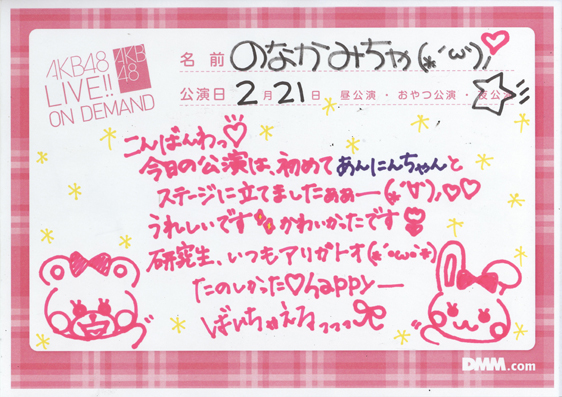 AKB48
LIVE!!
ON DEMAND
AKB
48
名前 のなかみちゃ(*´ω`)♡
公演日 2月21日 昼公演・おやつ公演・夜公演
こんばんわっ♡
今日の公演は、初めてあんにんちゃんと
ステージに立てましたぁぁー(*´∀`)♡♡
うれしいです かわいかったです
研究生、いつもアリガトオ(*´ω`*)
たのしかった♡happyー
ばいちゃえるっっっ
DMM.com